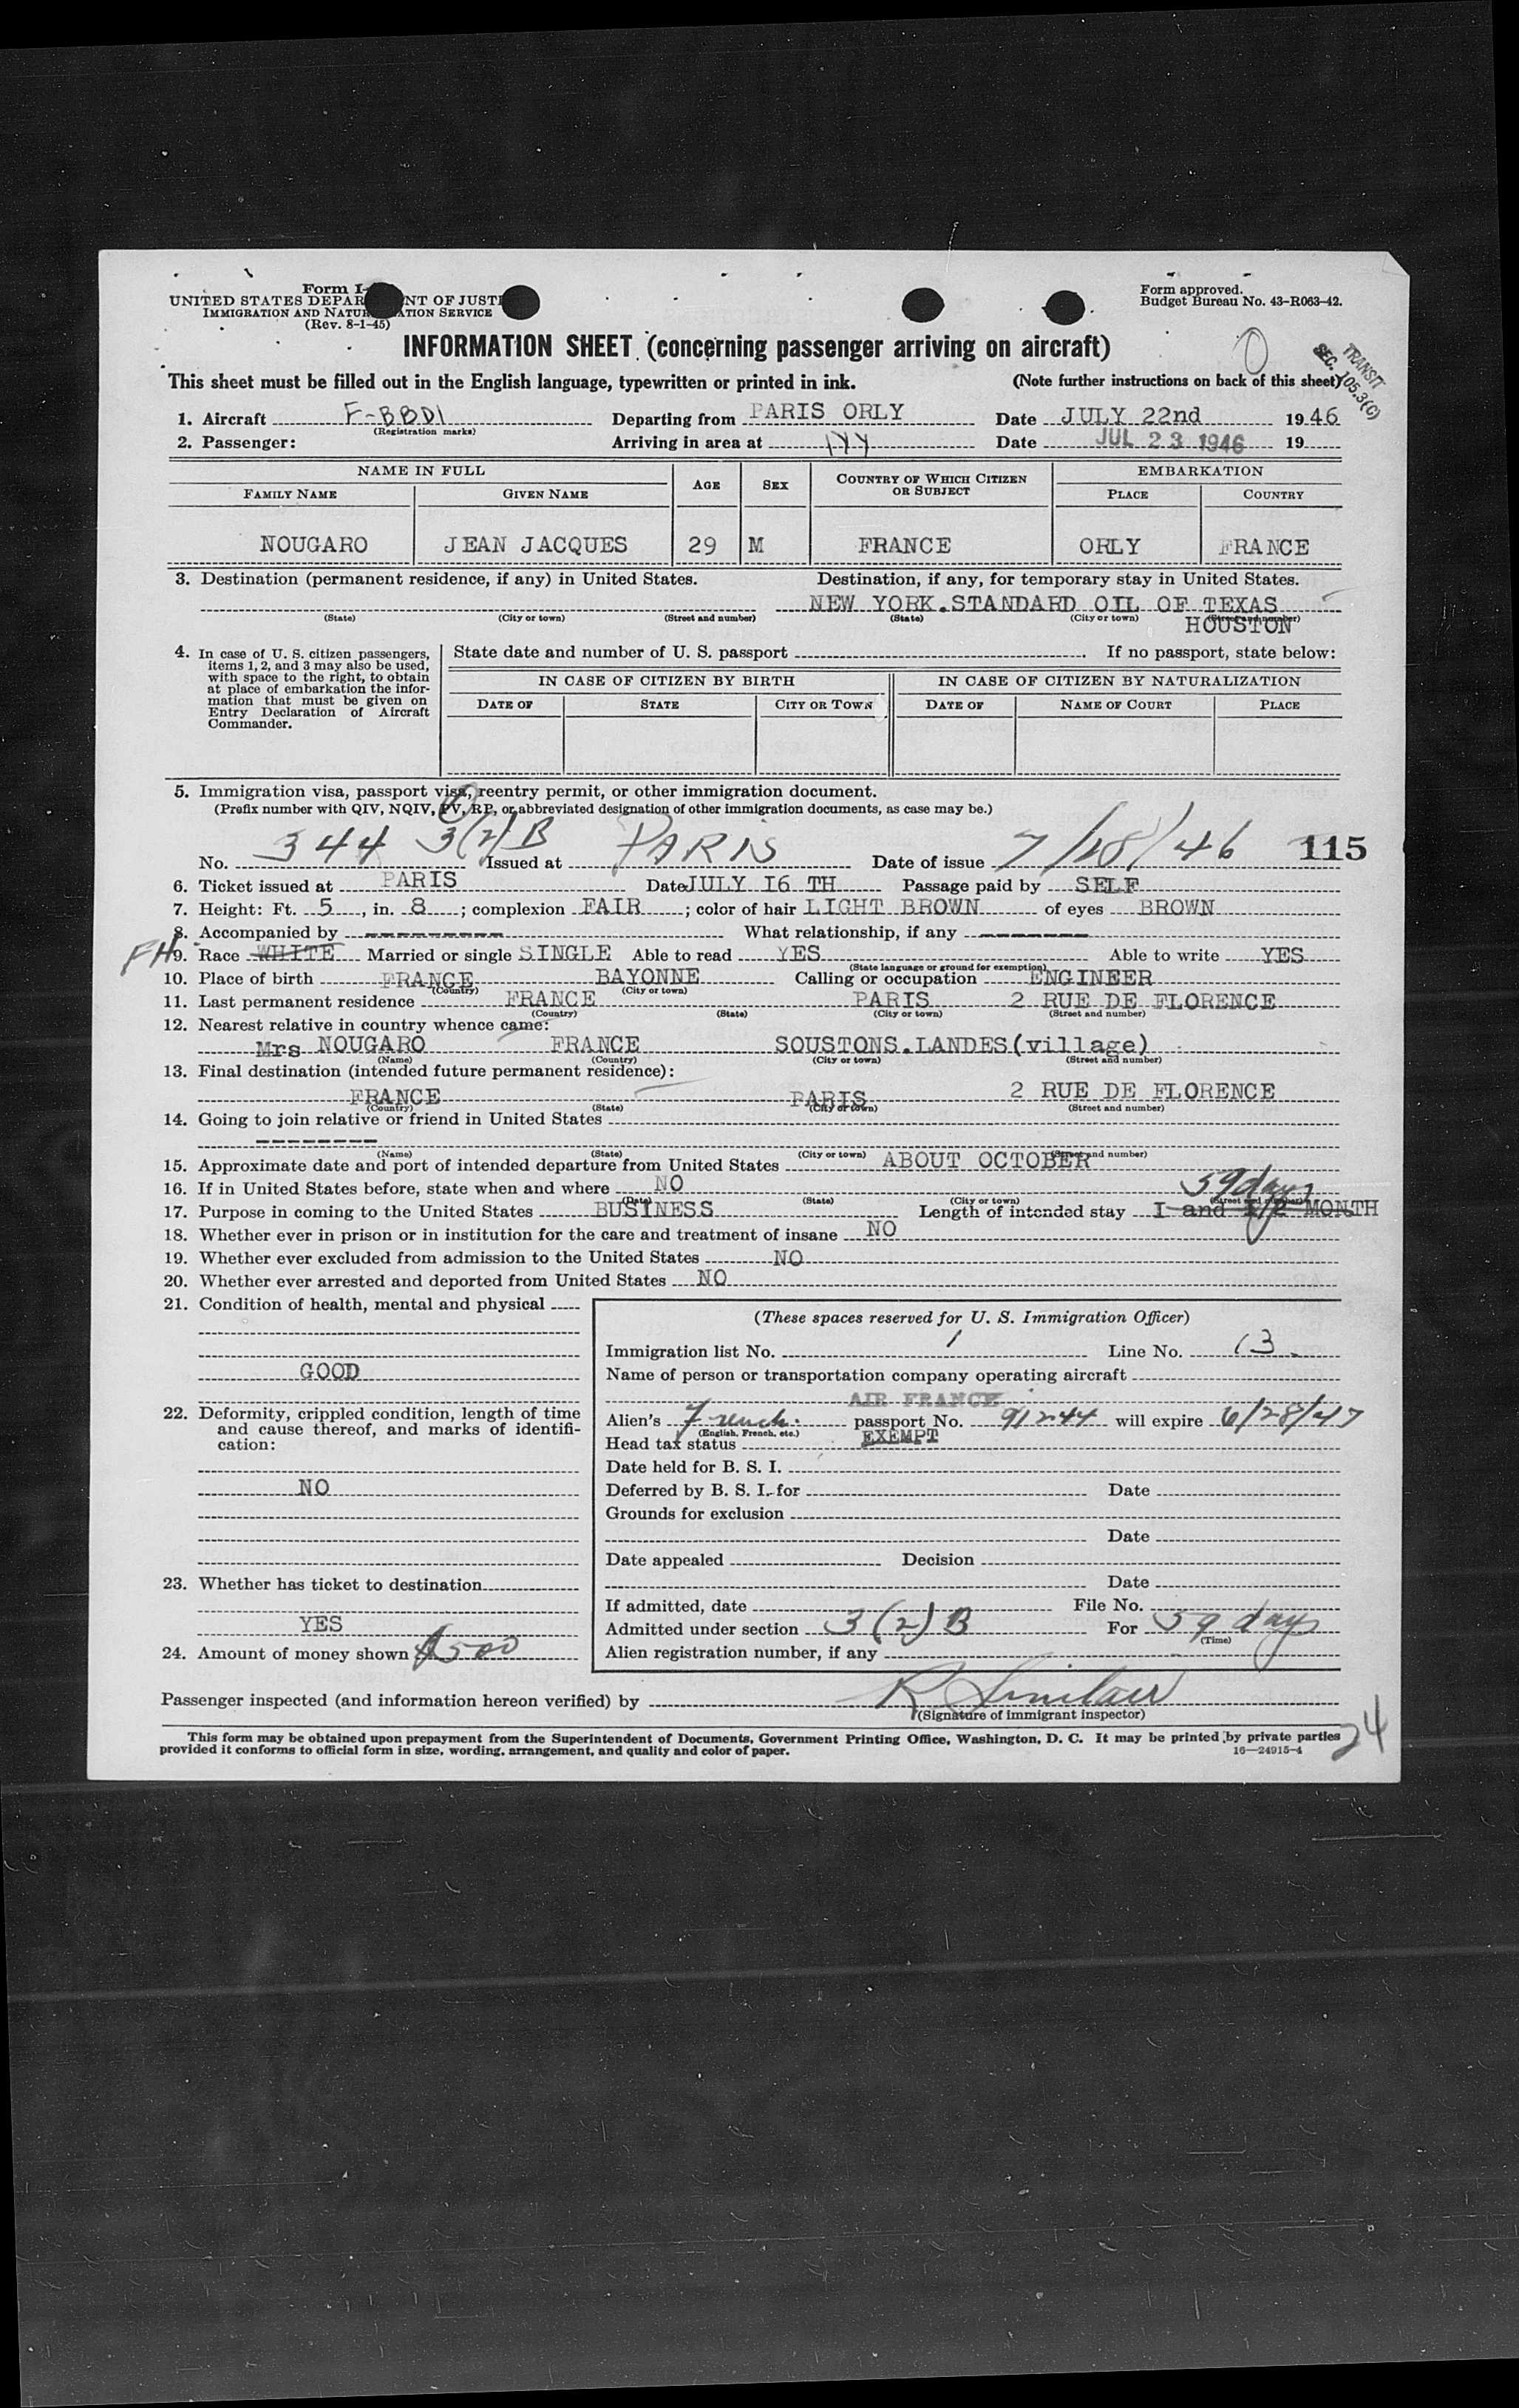 Form I-
UNITED STATES DEPAR NT OF JUSTI
IMMIGRATION AND NATUR ATION SERVICE
(Rev. 8-1-45)
Form approved.
Budget Bureau No. 43-R063-42.
INFORMATION SHEET (concerning passenger arriving on aircraft)
TRANSIT
SEC. 105.3(C)
This sheet must be filled out in the English language, typewritten or printed in ink. (Note further instructions on back of this sheet)
1. Aircraft F-BBDI Departing from PARIS ORLY Date JULY 22nd 1946
(Registration marks)
2. Passenger: Arriving in area at Date JUL 23 1946 19
NAME IN FULL AGE SEX COUNTRY OF WHICH CITIZEN OR SUBJECT EMBARKATION
FAMILY NAME GIVEN NAME PLACE COUNTRY
NOUGARO JEAN JACQUES 29 M FRANCE ORLY FRANCE
3. Destination (permanent residence, if any) in United States. Destination, if any, for temporary stay in United States.
NEW YORK.STANDARD OIL OF TEXAS
(State) (City or town) (Street and number) (State) (City or town) (Street and number)
HOUSTON
4. In case of U. S. citizen passengers, items 1, 2, and 3 may also be used, with space to the right, to obtain at place of embarkation the information that must be given on Entry Declaration of Aircraft Commander.
State date and number of U. S. passport . If no passport, state below:
IN CASE OF CITIZEN BY BIRTH IN CASE OF CITIZEN BY NATURALIZATION
DATE OF STATE CITY OR TOWN DATE OF NAME OF COURT PLACE
5. Immigration visa, passport visa, reentry permit, or other immigration document.
(Prefix number with QIV, NQIV, PV, RP, or abbreviated designation of other immigration documents, as case may be.)
No. 344 3(2)B Issued at PARIS Date of issue 7/18/46 115
6. Ticket issued at PARIS Date JULY I6 TH Passage paid by SELF
7. Height: Ft. 5, in. 8; complexion FAIR; color of hair LIGHT BROWN of eyes BROWN
8. Accompanied by --------- What relationship, if any -------
FH 9. Race WHITE Married or single SINGLE Able to read YES Able to write YES
(State language or ground for exemption)
10. Place of birth FRANCE BAYONNE Calling or occupation ENGINEER
(Country) (City or town)
11. Last permanent residence FRANCE PARIS 2 RUE DE FLORENCE
(Country) (State) (City or town) (Street and number)
12. Nearest relative in country whence came:
Mrs NOUGARO FRANCE SOUSTONS.LANDES(village)
(Name) (Country) (City or town) (Street and number)
13. Final destination (intended future permanent residence):
FRANCE PARIS 2 RUE DE FLORENCE
(Country) (State) (City or town) (Street and number)
14. Going to join relative or friend in United States
--------
(Name) (State) (City or town) (Street and number)
15. Approximate date and port of intended departure from United States ABOUT OCTOBER
16. If in United States before, state when and where NO 59 days
(Date) (State) (City or town) (Street and number)
17. Purpose in coming to the United States BUSINESS Length of intended stay I and 1/2 MONTH
18. Whether ever in prison or in institution for the care and treatment of insane NO
19. Whether ever excluded from admission to the United States NO
20. Whether ever arrested and deported from United States NO
21. Condition of health, mental and physical
GOOD
22. Deformity, crippled condition, length of time and cause thereof, and marks of identification:
NO
23. Whether has ticket to destination
YES
24. Amount of money shown $500
(These spaces reserved for U. S. Immigration Officer)
Immigration list No. 1 Line No. 13
Name of person or transportation company operating aircraft
AIR FRANCE
Alien's French passport No. 91244 will expire 6/28/47
(English, French, etc.)
Head tax status EXEMPT
Date held for B. S. I.
Deferred by B. S. I. for Date
Grounds for exclusion
Date
Date appealed Decision
Date
If admitted, date File No.
Admitted under section 3(2)B For 59 days
(Time)
Alien registration number, if any
Passenger inspected (and information hereon verified) by R Sinclair
(Signature of immigrant inspector)
This form may be obtained upon prepayment from the Superintendent of Documents, Government Printing Office, Washington, D. C. It may be printed by private parties
provided it conforms to official form in size, wording, arrangement, and quality and color of paper. 16—24915-4
24